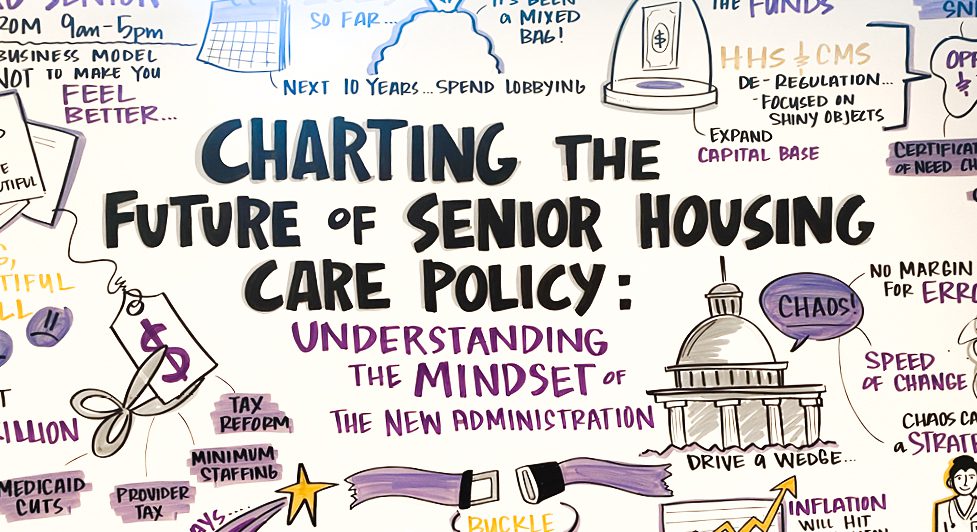 SENIOR
FROM 9am-5pm
BUSINESS MODEL
NOT TO MAKE YOU
FEEL
BETTER...
SO FAR...
IT'S BEEN
a MIXED
BAG!
NEXT 10 YEARS...SPEND LOBBYING
THE FUNDS
$
HHS & CMS
DE-REGULATION...
-FOCUSED ON
SHINY OBJECTS
EXPAND
CAPITAL BASE
&
OF NEED
CHARTING THE
FUTURE OF SENIOR HOUSING
CARE POLICY:
UNDERSTANDING
THE MINDSET OF
THE NEW ADMINISTRATION
$
TAX
REFORM
MINIMUM
STAFFING
PROVIDER
TAX
MEDICAID
CUTS
CHAOS!
NO MARGIN
FOR
SPEED
OF CHANGE
CHAOS
a
DRIVE a WEDGE...
BUCKLE
INFLATION
WILL HIT